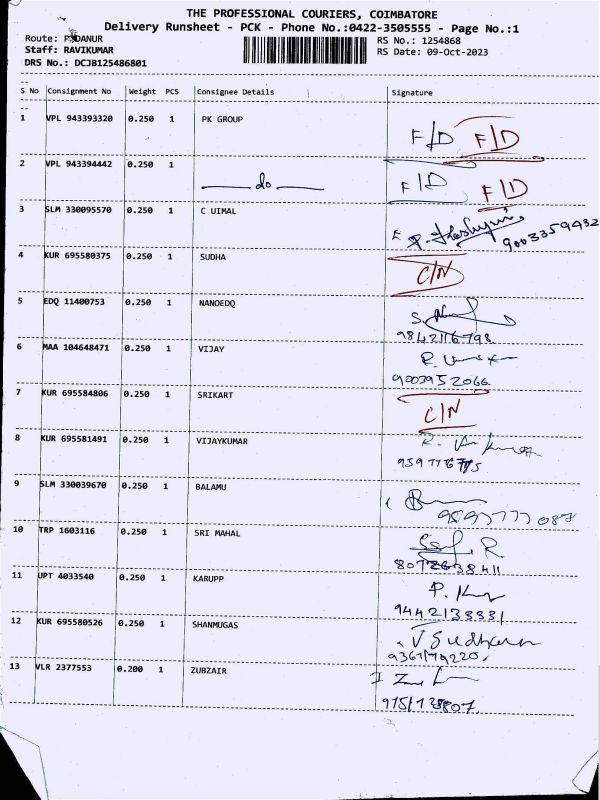 THE PROFESSIONAL COURIERS, COIMBATORE
Delivery Runsheet - PCK - Phone No.:0422-3505555 - Page No.:1
Route: PODANUR RS No.: 1254868
Staff: RAVIKUMAR RS Date: 09-Oct-2023
DRS No.: DCJB125486801
S No Consignment No Weight PCS Consignee Details Signature
1 VPL 943393320 0.250 1 PK GROUP F/D F/D
2 VPL 943394442 0.250 1 do F/D F/D
3 SLM 330095570 0.250 1 C UIMAL 9003359432
4 KUR 695580375 0.250 1 SUDHA C/N
5 EDQ 11400753 0.250 1 NANOEDQ
9842116798
6 MAA 104648471 0.250 1 VIJAY
9003952066
7 KUR 695584806 0.250 1 SRIKART C/N
8 KUR 695581491 0.250 1 VIJAYKUMAR
9 SLM 330039670 0.250 1 BALAMU
10 TRP 1603116 0.250 1 SRI MAHAL
8072638411
11 UPT 4033540 0.250 1 KARUPP
9442138331
12 KUR 695580526 0.250 1 SHANMUGAS
9367179220
13 VLR 2377553 0.200 1 ZUBZAIR